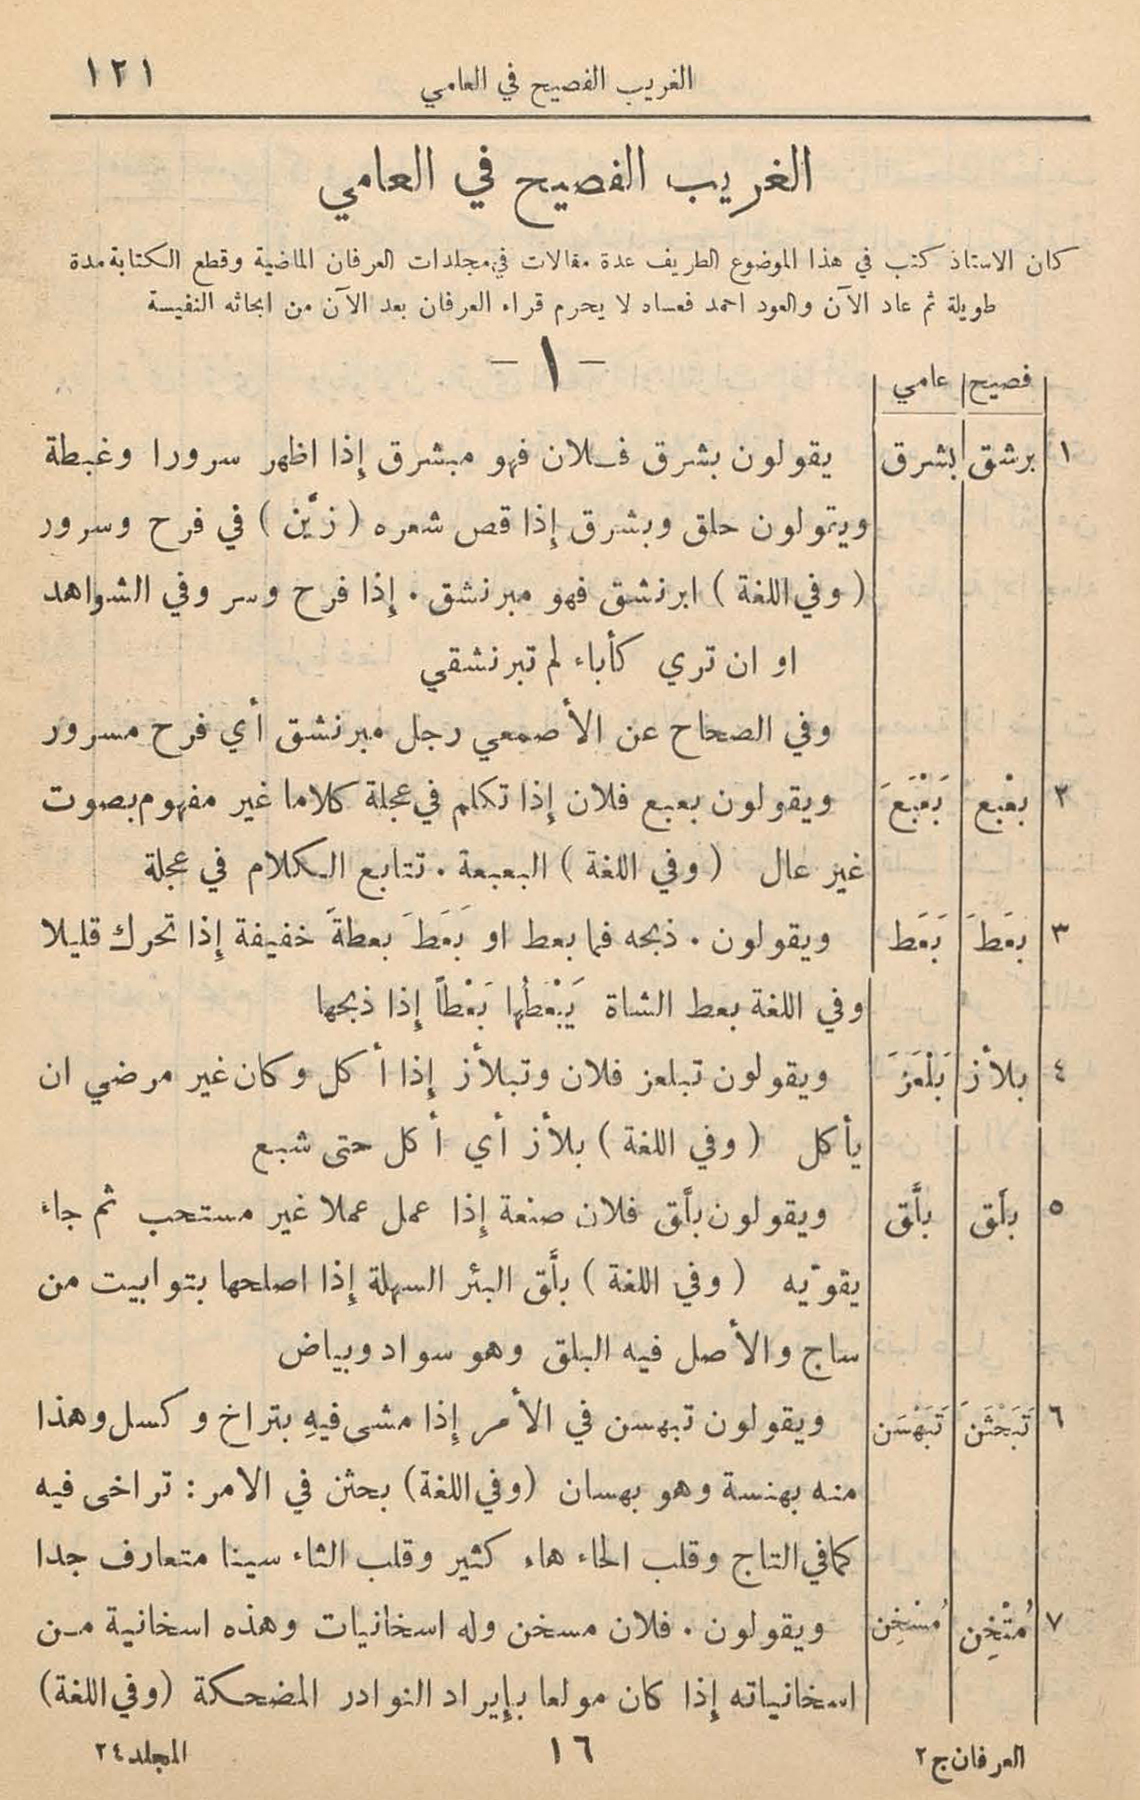 الغريب الفصيح في العامي ١٢١
الغريب الفصيح في العامي
كان الاستاذ كتب في هذا الموضوع الطريف عدة مقالات في مجلدات العرفان الماضية وقطع الكتابة مدة
طويلة ثم عاد الآن والعود احمد فعساه لا يحرم قراء العرفان بعد الآن من ابحاثه النفيسة
– ١ –
فصيح عامي
١ برشق بشرق يقولون بشرق فلان فهو مبشرق إذا اظهر سرورا وغبطة
ويقولون حلق وبشرق إذا قص شعره ( زيَّن ) في فرح وسرور
( وفي اللغة ) ابرنشق فهو مبرنشق . إذا فرح وسر وفي الشواهد
او ان تري كأباء لم تبرنشقي
وفي الصحاح عن الأصمعي رجل مبرنشق أي فرح مسرور
٢ بعْبع بَعْبَعَ ويقولون بعبع فلان إذا تكلم في عجلة كلاما غير مفهوم بصوت
غير عال ( وفي اللغة ) البعبعة . تتابع الكلام في عجلة
٣ بعَطَ بَعَط ويقولون . ذبحه فما بعط او بَعَطَ بعطةً خفيفة إذا تحرك قليلا
وفي اللغة بعط الشاة يَبْعَطُها بَعْطاً إذا ذبحها
٤ بلأز بَلْعَزَ ويقولون تبلعز فلان وتبلأز إذا أكل وكان غير مرضي ان
يأكل ( وفي اللغة ) بلأز أي أكل حتى شبع
٥ بلَّق بلَّق ويقولون بلَّق فلان صنعة إذا عمل عملا غير مستحب ثم جاء
يقوّيه ( وفي اللغة ) بلَّق البئر السهلة إذا اصلحها بتوابيت من
ساج والأصل فيه البلق وهو سواد وبياض
٦ تَبَحْثَنَ تَبَهْسَن ويقولون تبهسن في الأمر إذا مشى فيهِ بتراخ وكسل وهذا
منه بهنسة وهو بهسان (وفي اللغة) بحثن في الامر : تراخى فيه
كما في التاج وقلب الحاء هاء كثير وقلب الثاء سينا متعارف جدا
٧ مُثْخِن مُسْخِن ويقولون . فلان مسخن وله اسخانيات وهذه اسخانية من
اسخانياته إذا كان مولعا بإيراد النوادر المضحكة (وفي اللغة)
العرفان ج٢ ١٦ المجلد ٢٤